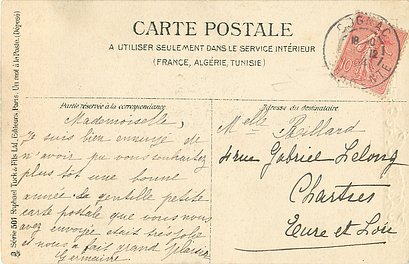 CARTE POSTALE
A UTILISER SEULEMENT DANS LE SERVICE INTÉRIEUR
(FRANCE, ALGÉRIE, TUNISIE)
COGNAC
CHARENTE
Partie réservée à la correspondance
Adresse du destinataire
Mademoiselle,
Je suis bien ennuyé de
n'avoir pu vous souhaitez
plus tôt une bonne
année. La gentille petite
carte postale que vous nous
avez envoyée était très jolie
et nous a fait grand plaisir
Germaine
Melle Reillard
4 rue Gabriel Lelong
Chartres
Eure et Loir
Série 501 Raphael Tuck & Fils Ltd., Editeurs Paris. Un mot à la Poste. (Déposé)